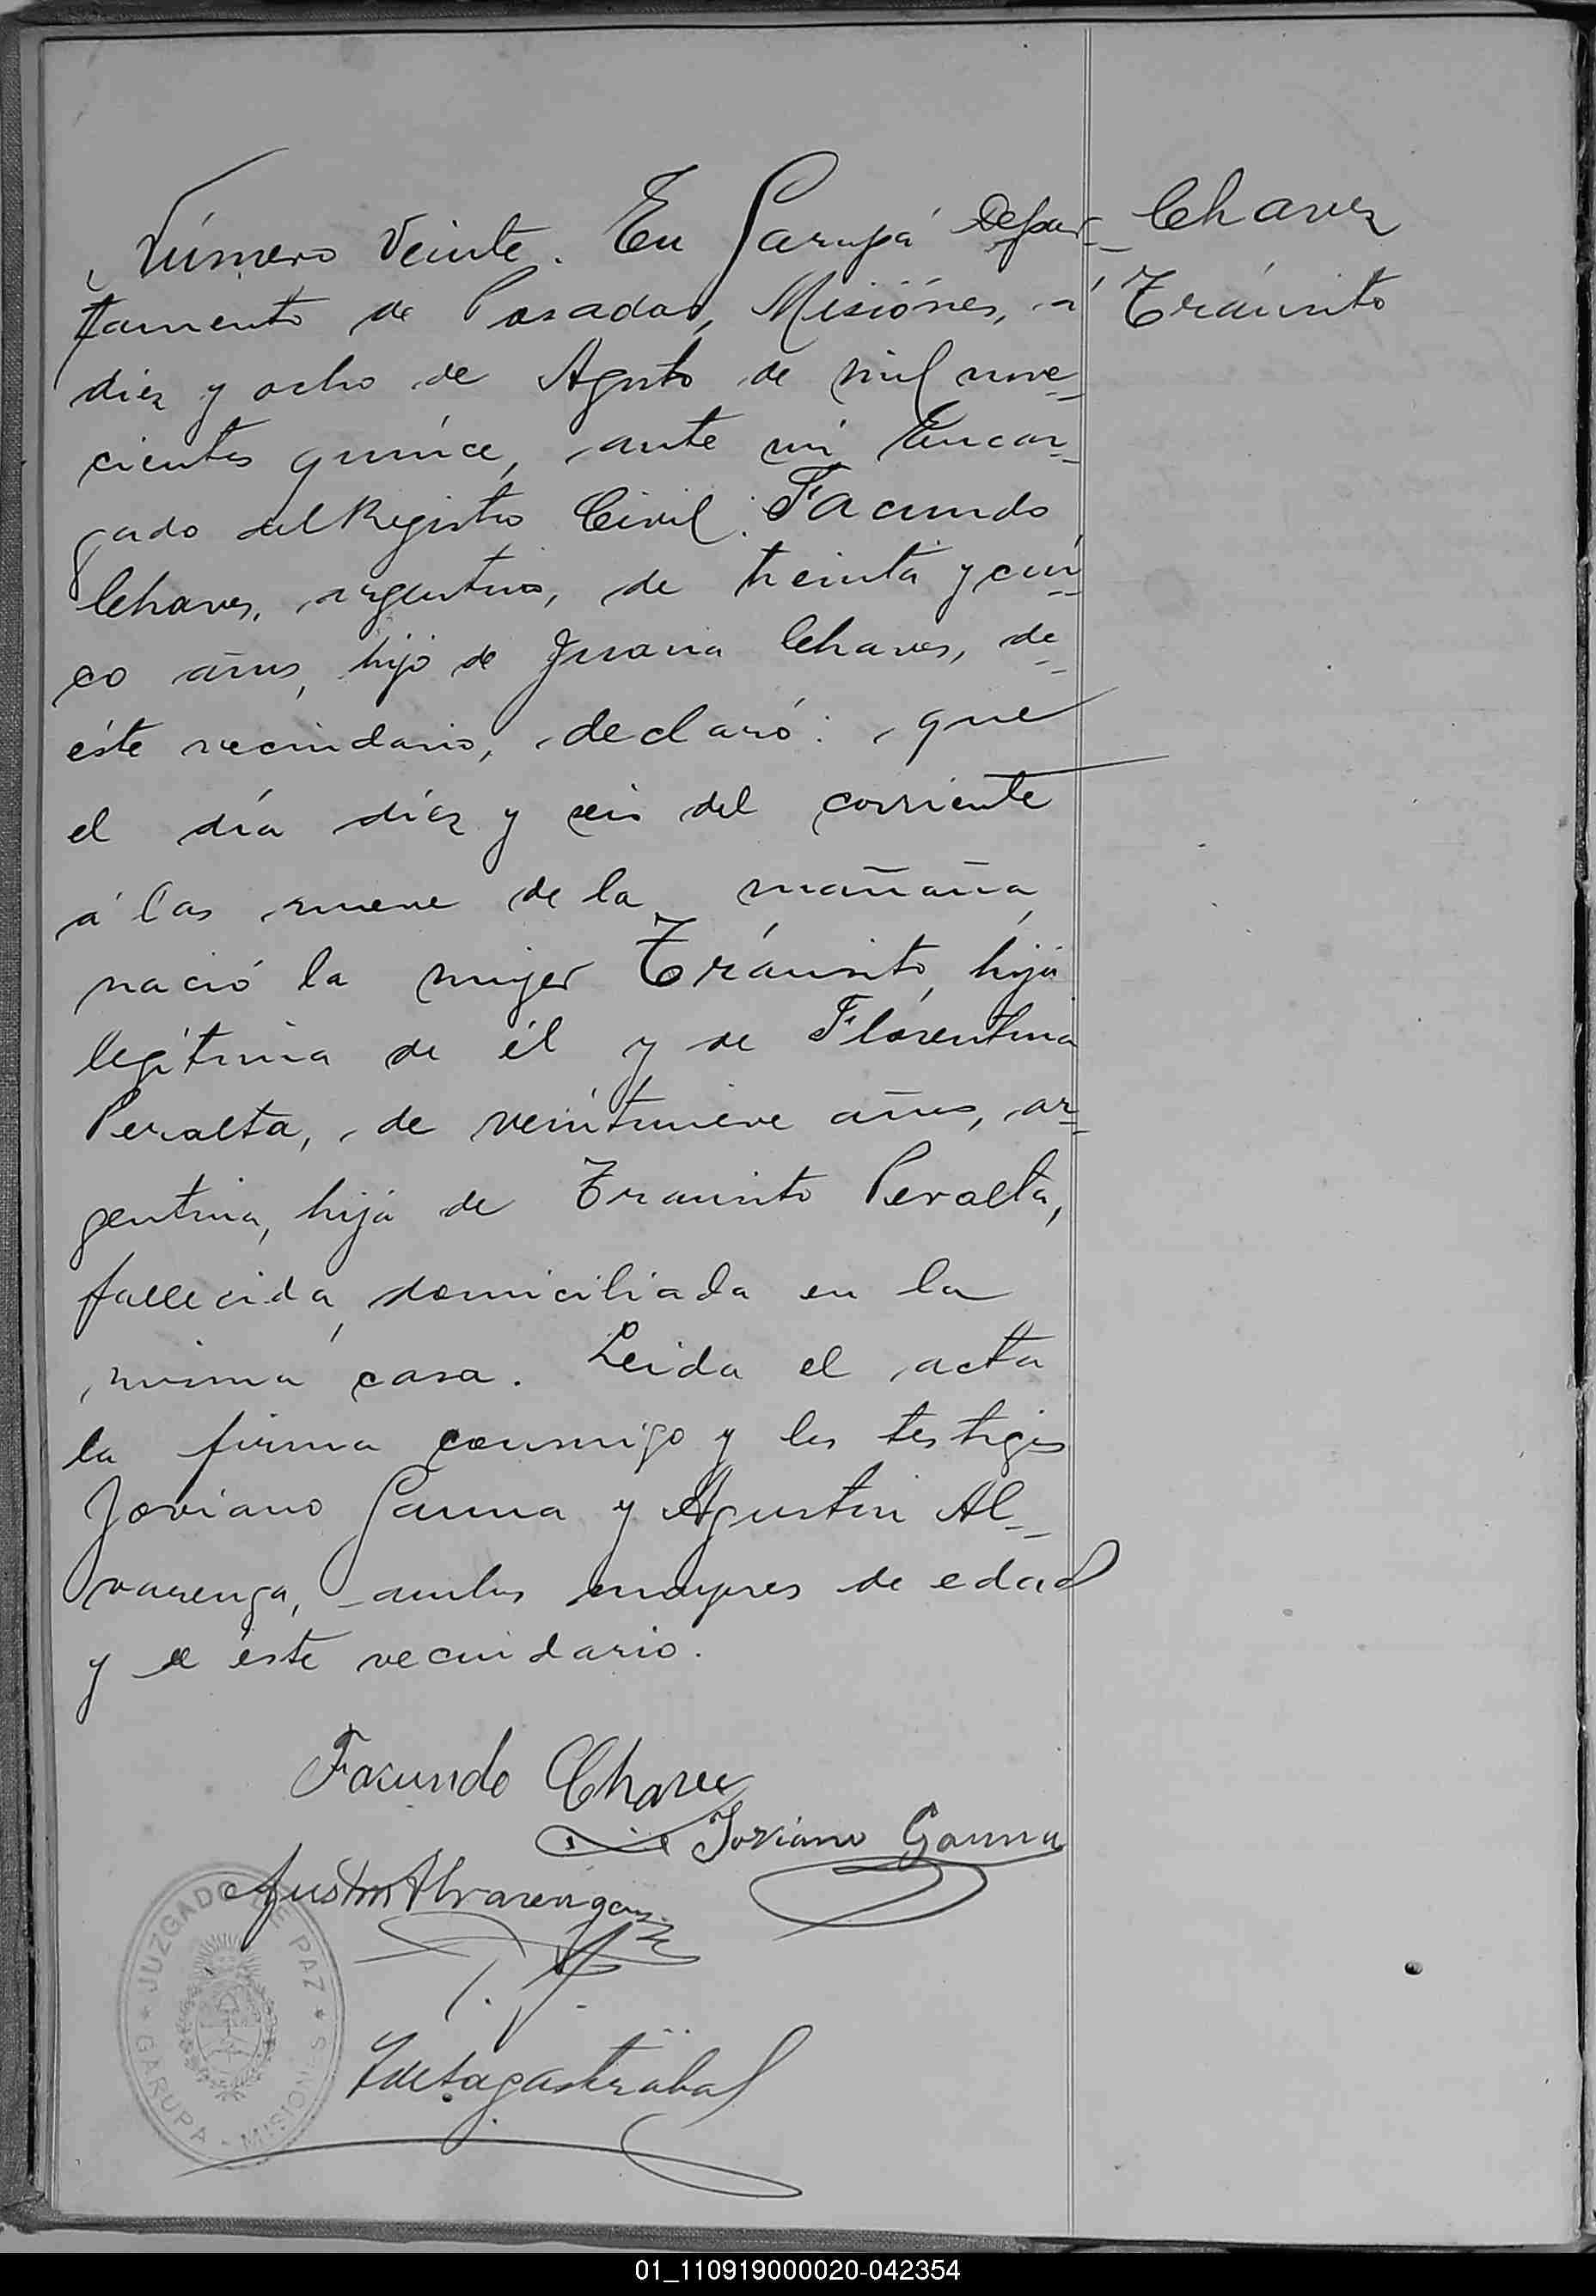 Número Veinte. En Garupá Depar-
tamento de Posadas, Misiónes, á
diez y ocho de Agosto de mil nove-
cientos quince, ante mi Encar-
gado del Registro Civil: Facundo
Chaves, argentino, de treinta y cin-
co años, hijo de Juana Chaves, de
éste vecindario, declaró: que
el día diéz y seis del corriente
á las nueve de la mañana,
nació la mujer Tránsito, hija
legítima de él y de Florentina
Peralta, de veintinueve años, ar-
gentina, hija de Transito Peralta,
fallecida, domiciliada en la
misma casa. Leida el acta
la firma conmigo y los testigos
Joviano Gauna y Agustin Al-
varenga, ambos mayores de edad
y de éste vecindario.
Chavez
Tránsito
Facundo Chavez
Joviano Gauna
Agustin Alvarenga
JUZGADO DE PAZ
GARUPA - MISIONES
01_110919000020-042354